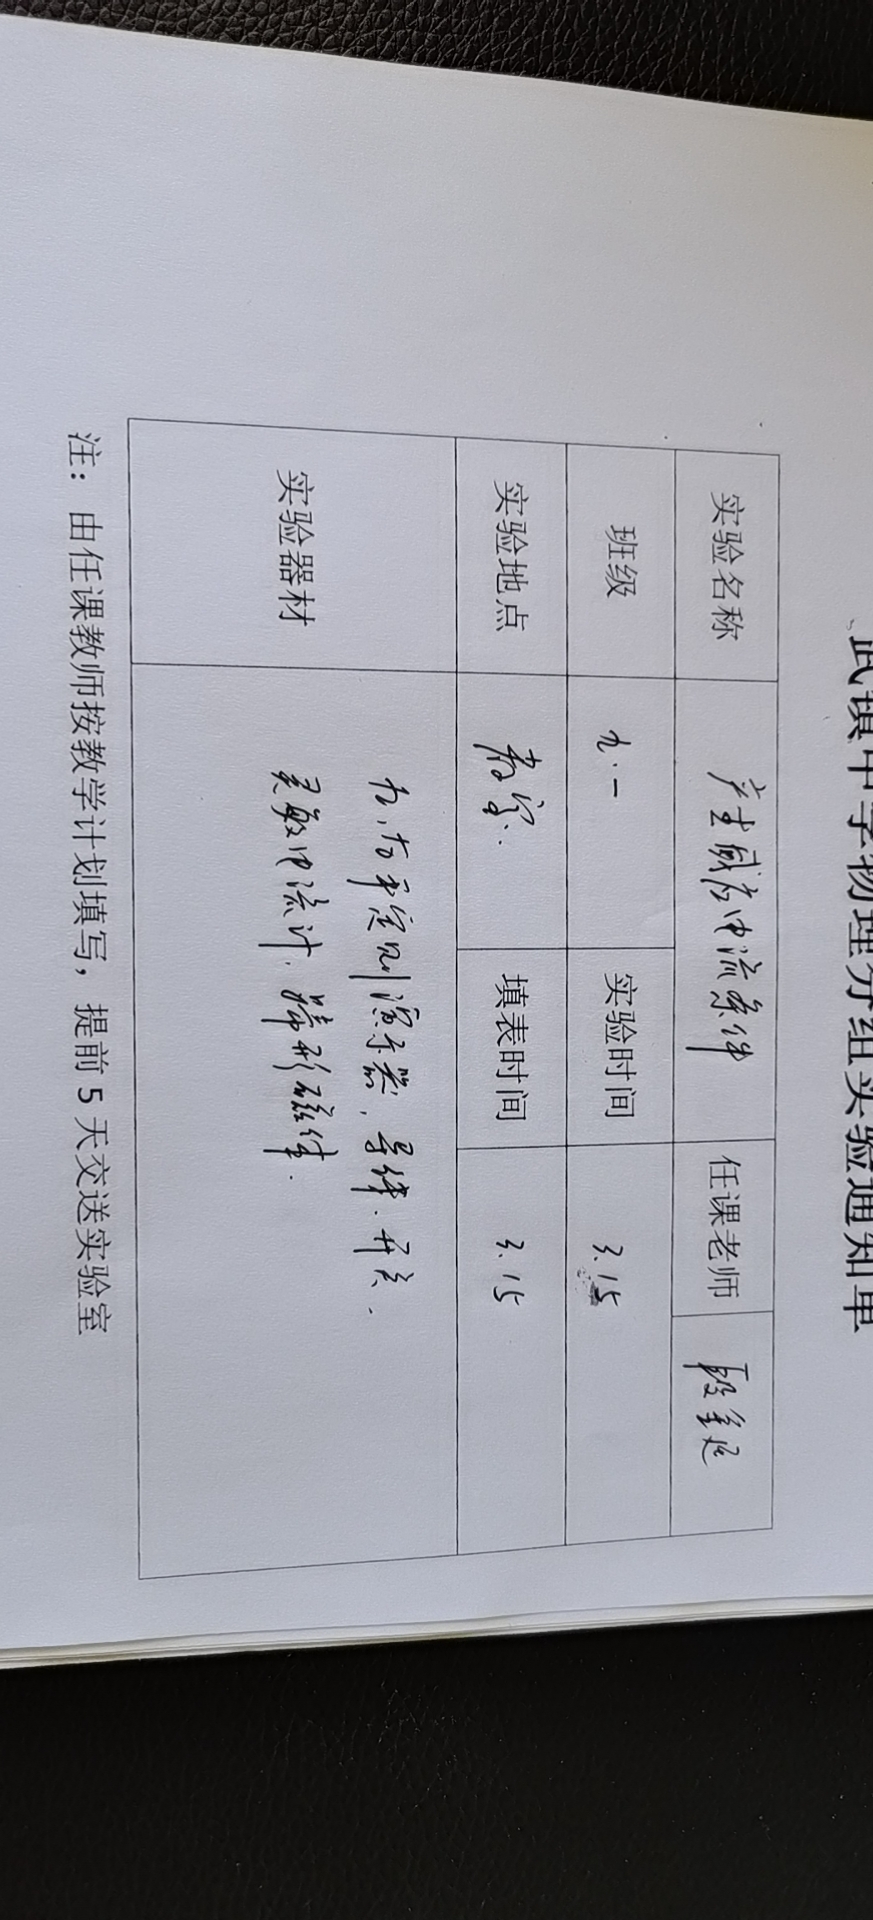 武镇中学物理分组实验通知单
实验名称 产生感应电流条件 任课老师
班级 九.一 实验时间 3.15
实验地点 教室. 填表时间 3.15
实验器材 左,右手定则演示器,导体.开关.
灵敏电流计.蹄形磁体.
注：由任课教师按教学计划填写，提前 5 天交送实验室